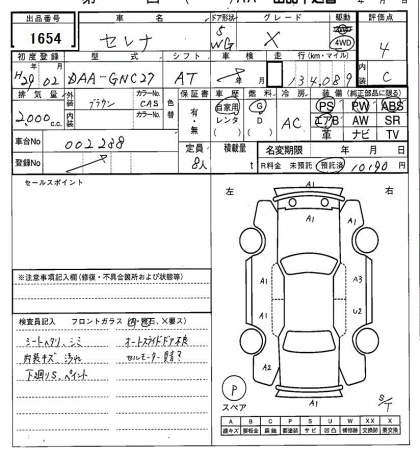 出品番号 車名 ドア形状 グレード 駆動 評価点
1654 セレナ 5 WG X 4WD 4
初度登録 型式 シフト 車検 走行(km・マイル) 内装
H29 02 DAA-GNC27 AT 年 月 134,089 C
排気量 外装 カラーNo. 色替 保証書 車歴 燃料 冷房 装備(純正部品に限る)
2,000 c.c. ブラウン CAS 有・無 自家用 G AC PS PW ABS
内装 カラーNo. レンタ D エアB AW SR
車台No 002288 ( ) ( ) 革 ナビ TV
登録No 定員 積載量 名変期限 年 月 日
8人 t R料金 未預託 預託済 10190 円
セールスポイント
左 右
A1
A1 A1
※注意事項記入欄(修復・不具合箇所および状態等)
A1 A3
A1 U2
検査員記入 フロントガラス
シートヘタリ、シミ オートスライドドア不良
内装キズ、汚れ セルモーター異音?
下廻りS、ペイント
A2 A1
P
スペア
A1
S/T
A B C P S U W X XX
線キズ 要板金 腐蝕 要塗装 サビ 凹凸 補修跡 交換跡 要交換